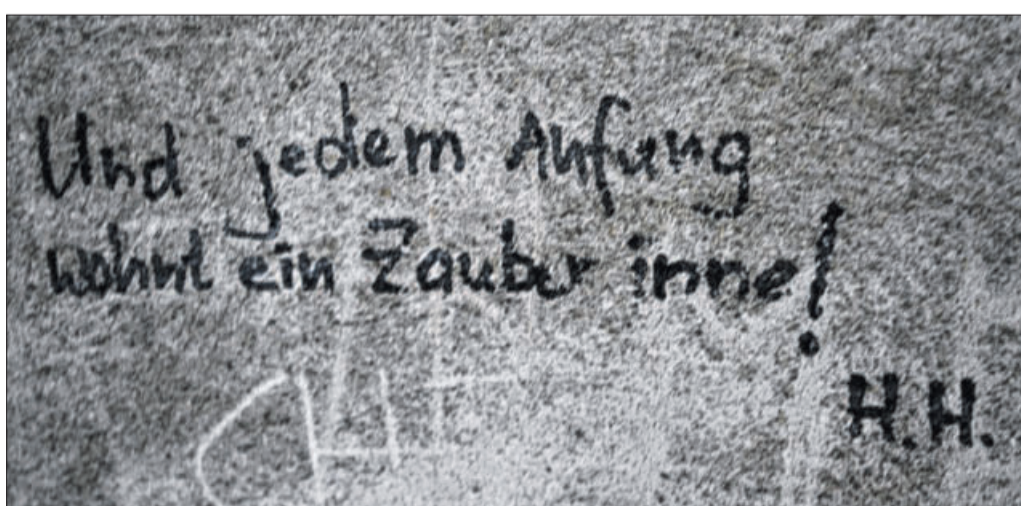 Und jedem Anfang
wohnt ein Zauber inne!
H.H.